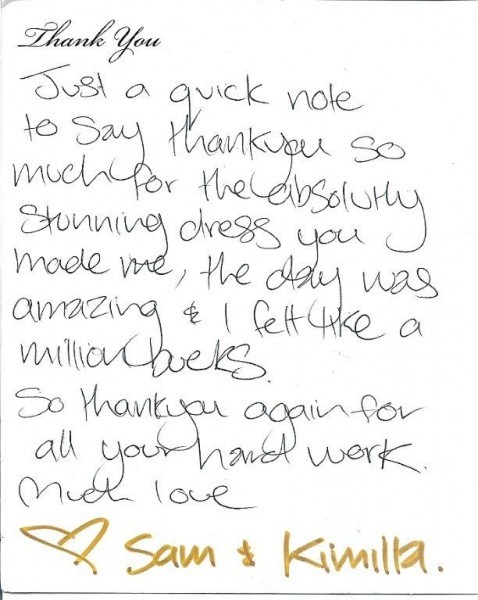 Thank You
Just a quick note
to say thankyou so
much for the absolutly
stunning dress you
made me, the day was
amazing & I felt like a
million bucks.
So thankyou again for
all your hard work.
Much love
♡ Sam & Kimilla.